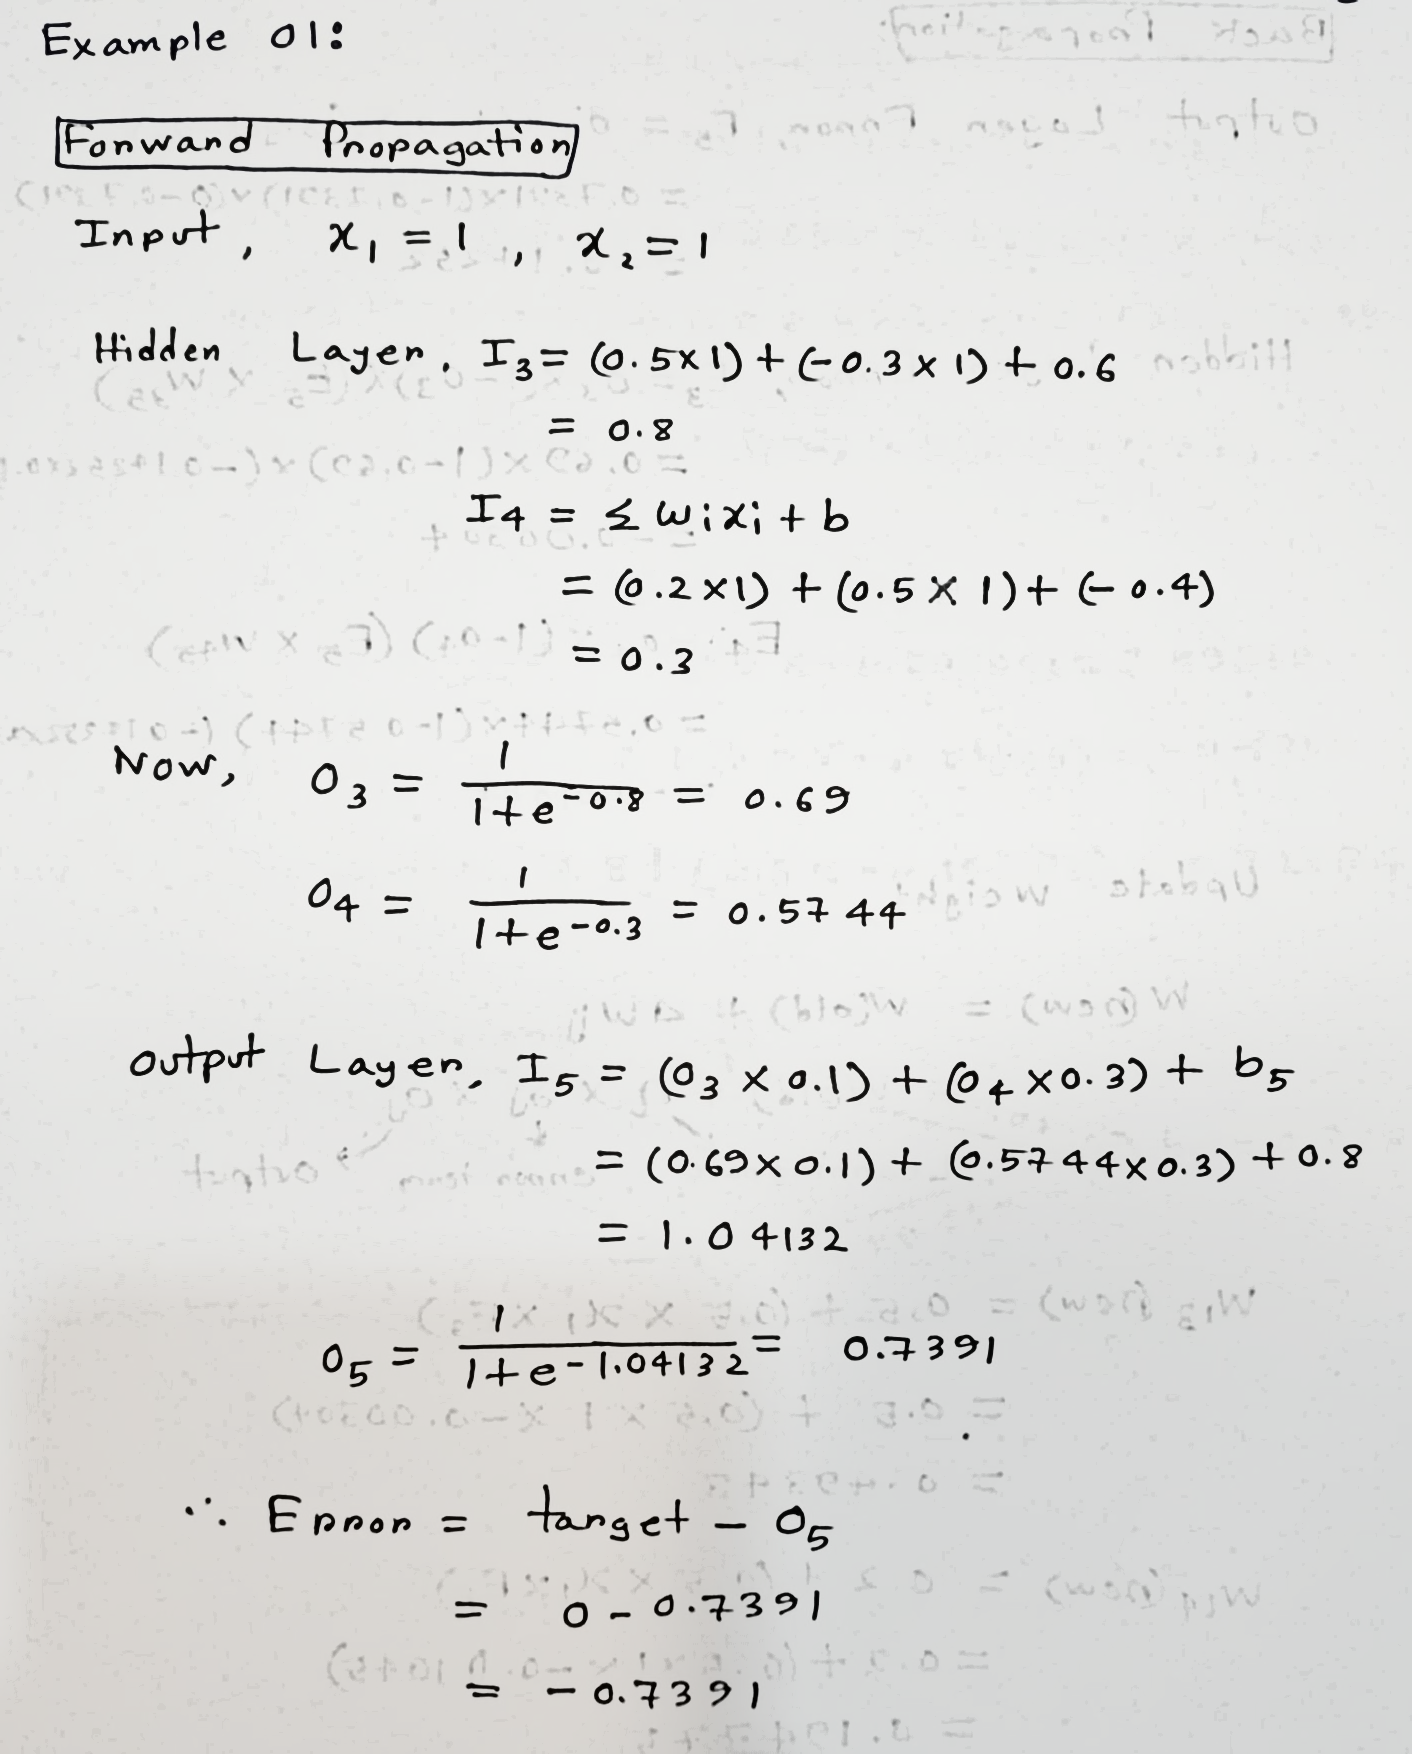 Example 01:
Forward Propagation
Input, x₁ = 1, x₂ = 1
Hidden Layer, I₃ = (0.5×1) + (-0.3 × 1) + 0.6
= 0.8
I₄ = Σ wᵢxᵢ + b
= (0.2 ×1) + (0.5 × 1) + (-0.4)
= 0.3
Now, O₃ = 1 / (1+e^-0.8) = 0.69
O₄ = 1 / (1+e^-0.3) = 0.5744
Output Layer, I₅ = (O₃ × 0.1) + (O₄ ×0.3) + b₅
= (0.69× 0.1) + (0.5744×0.3) + 0.8
= 1.04132
O₅ = 1 / (1+e^-1.04132) = 0.7391
∴ Error = target - O₅
= 0 - 0.7391
= -0.7391